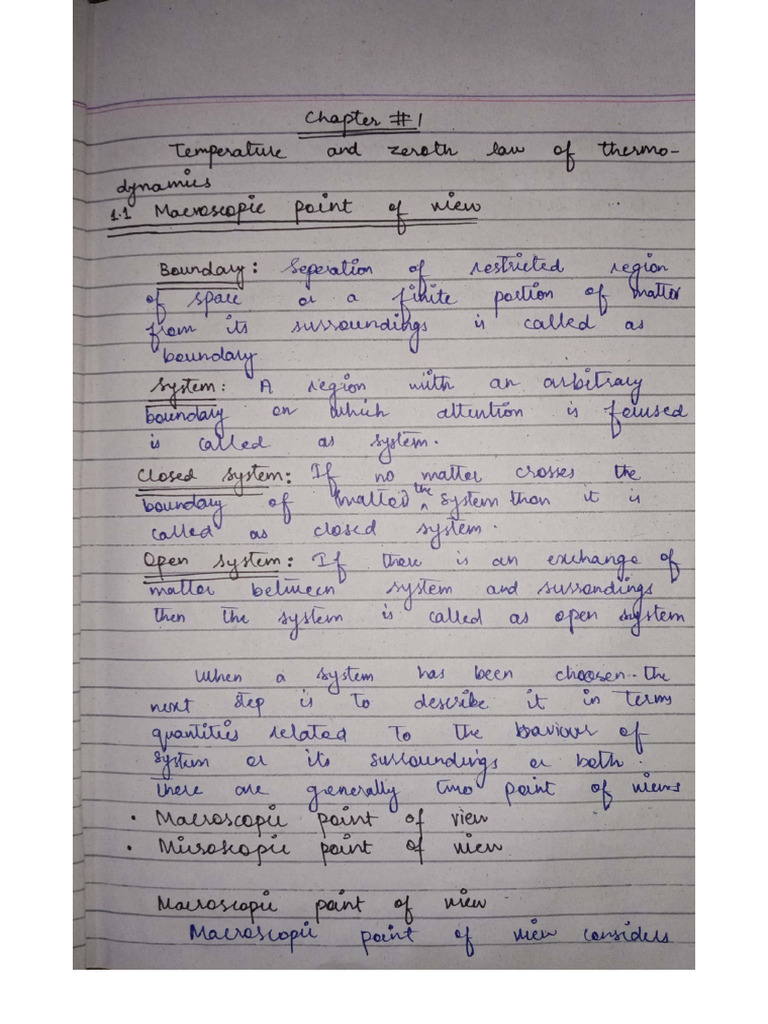 Chapter #1
Temperature and zeroth law of thermo-
dynamics
1.1 Macroscopic point of view
Boundary: Seperation of restricted region
of space or a finite portion of matter
from its surroundings is called as
boundary
System: A region with an arbitrary
boundary on which attention is focused
is called as system.
Closed system: If no matter crosses the
boundary of the system than it is
called as closed system.
Open system: If there is an exchange of
matter between system and surrondings
then the system is called as open system
When a system has been choosen the
next step is to describe it in terms
quantities related to the baviour of
system or its surroundings or both.
there are generally two point of views
• Macroscopic point of view
• Microscopic point of view
Macroscopic point of view
Macroscopic point of view considers